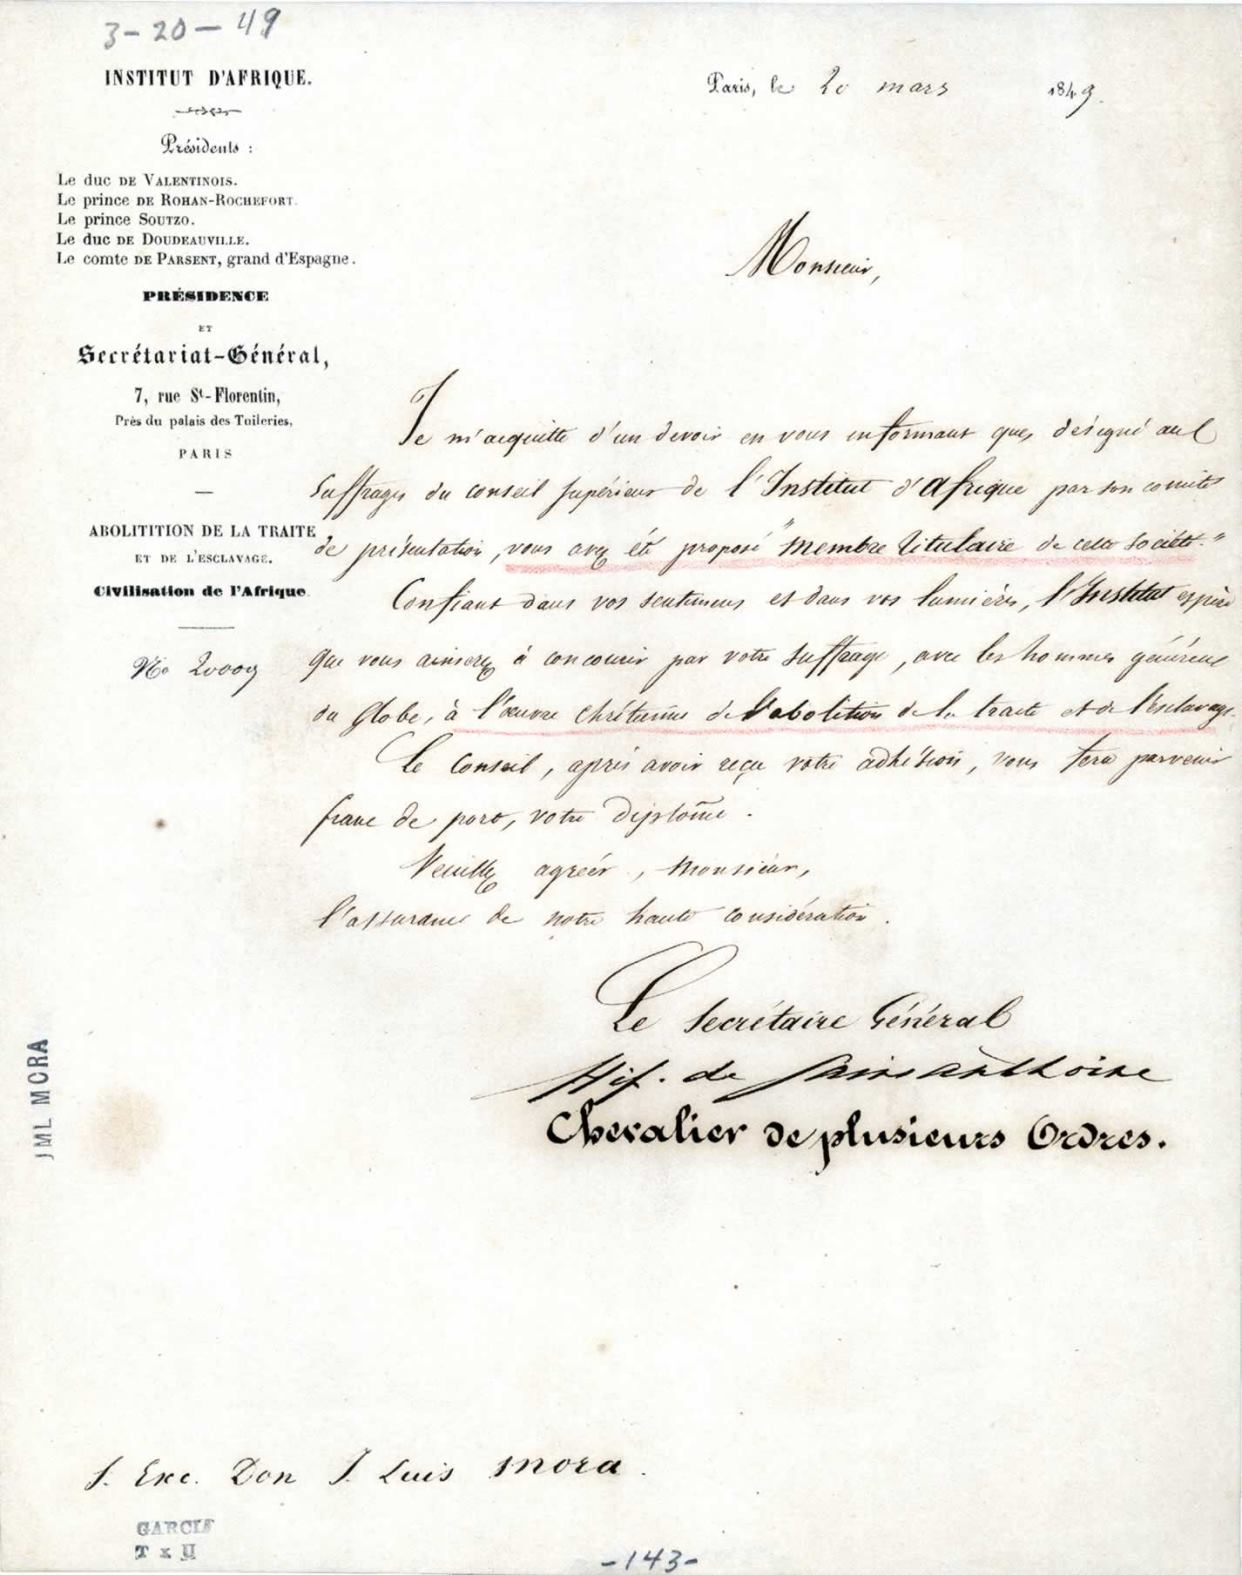 3-20-49
INSTITUT D'AFRIQUE.
Présidents :
Le duc DE VALENTINOIS.
Le prince DE ROHAN-ROCHEFORT.
Le prince SOUTZO.
Le duc DE DOUDEAUVILLE.
Le comte DE PARSENT, grand d'Espagne.
PRÉSIDENCE
ET
Secrétariat-Général,
7, rue St-Florentin,
Près du palais des Tuileries,
PARIS
ABOLITITION DE LA TRAITE
ET DE L'ESCLAVAGE.
Civilisation de l'Afrique.
No 20009
Paris, le 20 mars 1849.
Monsieur,
Je m'acquitte d'un devoir en vous informant que, désigné aux
suffrages du conseil supérieur de l'Institut d'Afrique par son comité
de présentation, vous avez été proposé "membre titulaire de cette société."
Confiant dans vos sentimens et dans vos lumières, l'Institut espère
que vous aimerez à concourir par votre suffrage, avec les hommes généreux
du Globe, à l'œuvre chrétienne de l'abolition de la traite et de l'esclavage.
Le Conseil, après avoir reçu votre adhésion, vous fera parvenir
franc de port, votre diplôme.
Veuillez agréer, Monsieur,
l'assurance de notre haute considération.
Le Secrétaire Général
Hip. de Saint Anthoine
Chevalier de plusieurs Ordres.
JML MORA
S. Exc. Don J. Luis Mora.
GARCIA
T x II
-143-